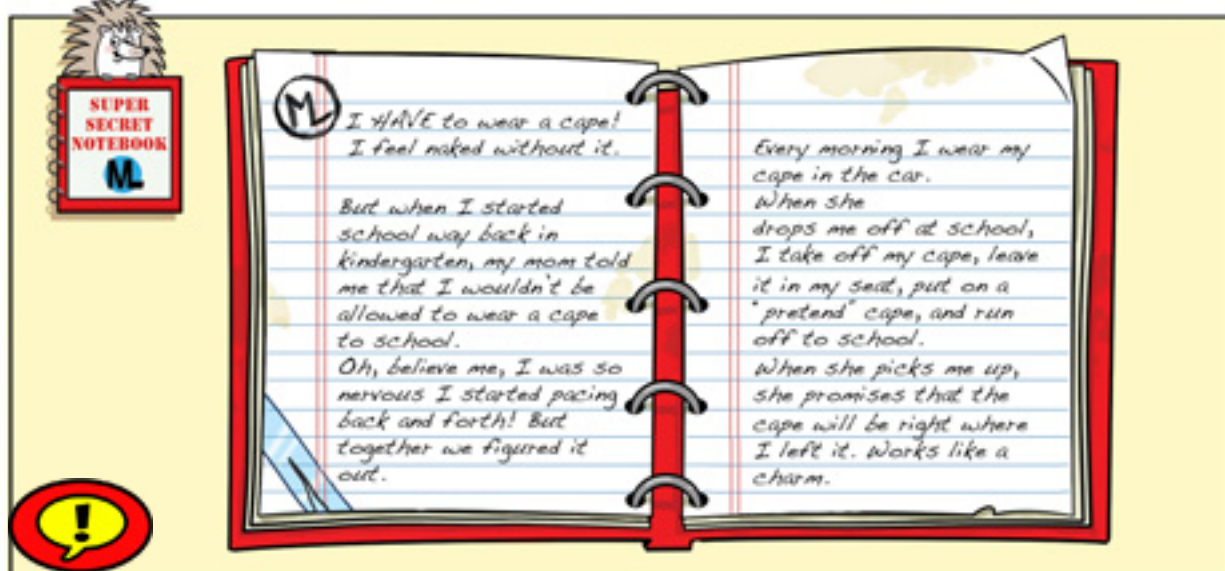 SUPER
SECRET
NOTEBOOK
ML
ML
I HAVE to wear a cape!
I feel naked without it.
But when I started
school way back in
kindergarten, my mom told
me that I wouldn't be
allowed to wear a cape
to school.
Oh, believe me, I was so
nervous I started pacing
back and forth! But
together we figured it
out.
Every morning I wear my
cape in the car.
When she
drops me off at school,
I take off my cape, leave
it in my seat, put on a
"pretend" cape, and run
off to school.
When she picks me up,
she promises that the
cape will be right where
I left it. Works like a
charm.
!